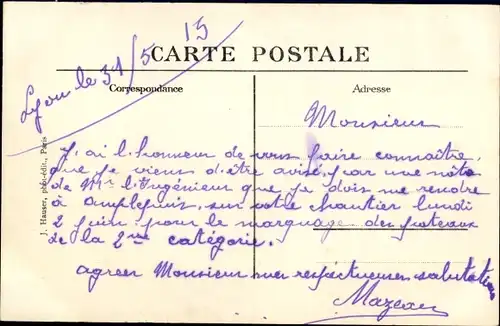 Lyon le 31/5 13
CARTE POSTALE
Correspondance
Adresse
Monsieur
J'ai l'honneur de vous faire connaître
que je viens d'être avisé par une note
de Mr l'Ingénieur que je dois me rendre
à Amplepuis, sur votre chantier lundi
2 juin pour le marquage des poteaux
de la 2me catégorie.
agréer Monsieur mes respectueuses salutations
J. Hauser, phot-édit., Paris